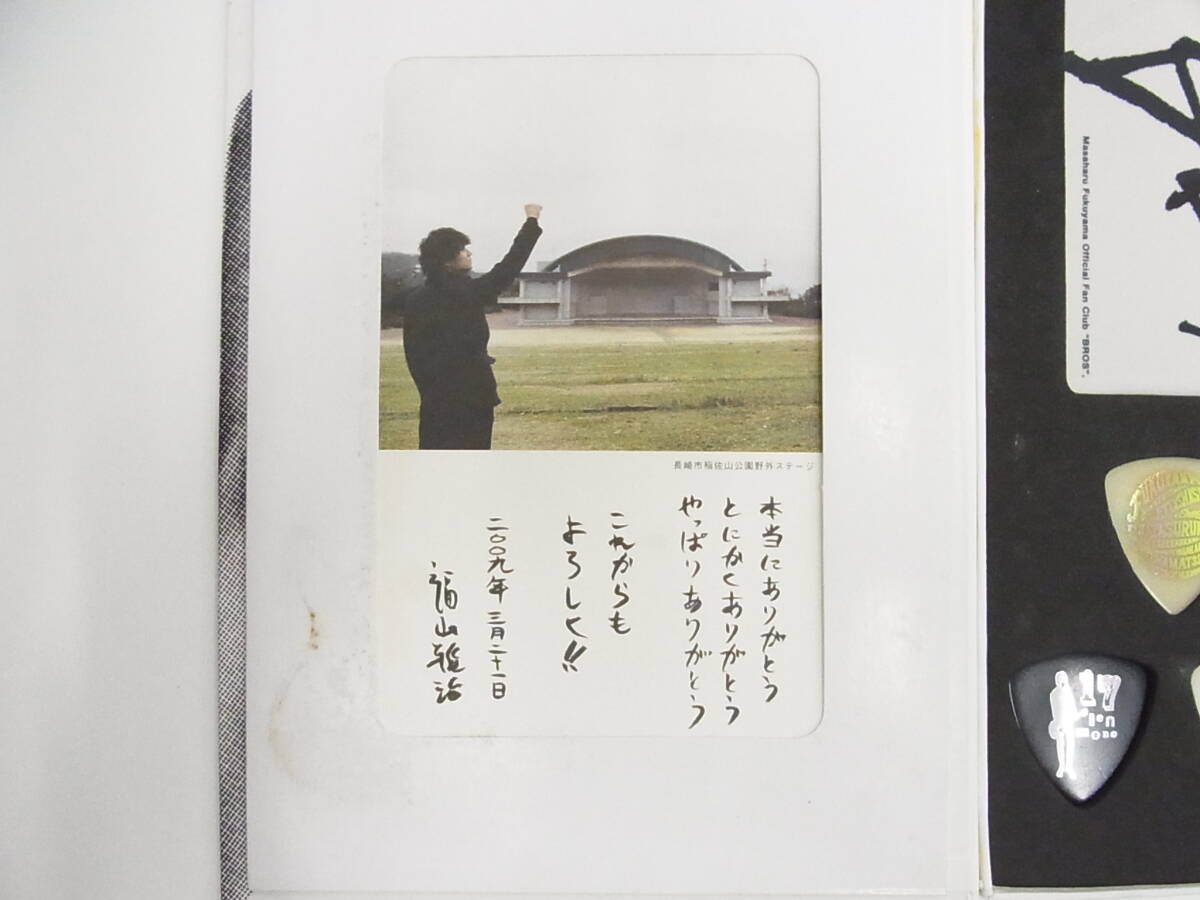 長崎市稲佐山公園野外ステージ
本当にありがとう
とにかくありがとう
やっぱりありがとう
これからも
よろしく!!
二〇〇九年 三月二十一日
福山雅治
Masaharu Fukuyama Official Fan Club "BROS".
17